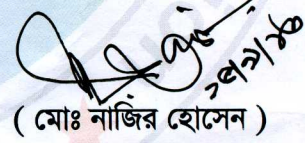 ( মোঃ নাজির হোসেন )